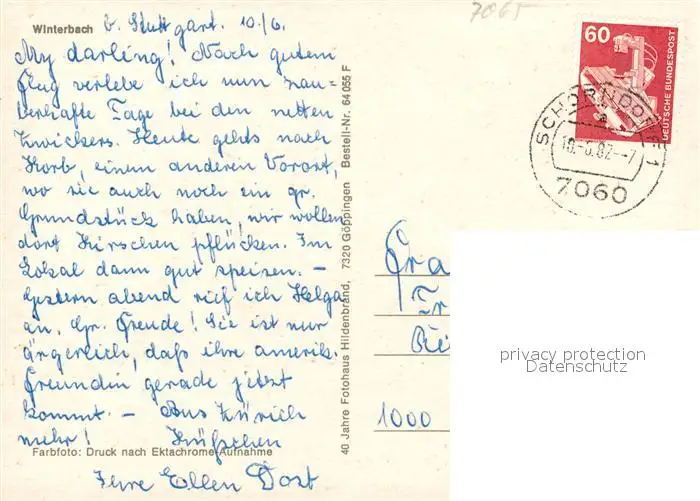 Winterbach b. Stuttgart. 10./6.
My darling! Nach gutem
Flug verlebe ich nun zau-
berhafte Tage bei den netten
Zwickers. Heute gehts nach
Korb, einem anderen Vorort,
wo sie auch noch ein gr.
Grundstück haben, wir wollen
dort Kirschen pflücken. Im
Lokal dann gut speisen. -
Gestern abend rief ich Helga
an. Gr. Freude! Sie ist nur
ärgerlich, daß ihre amerik.
Freundin gerade jetzt
kommt. - Aus Zürich
mehr! Küßchen
Farbfoto: Druck nach Ektachrome-Aufnahme
Ihre Ellen Dost
40 Jahre Fotohaus Hildenbrand, 7320 Göppingen Bestell-Nr. 64 055 F
7065
60
DEUTSCHE BUNDESPOST
SCHORNDORF 1
10.-6.82.-7
7060
Fra
1000
privacy protection
Datenschutz